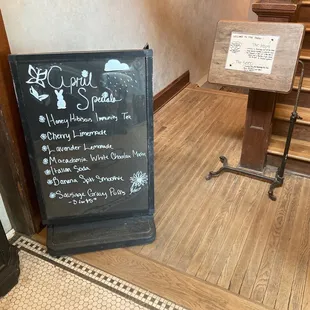 April
Specials
Honey Hibiscus Immunity Tea
Cherry Limeade
Lavender Lemonade
Macadamia White Chocolate Mocha
Italian Soda
Banana Split Smoothie
Sausage Gravy Puffs